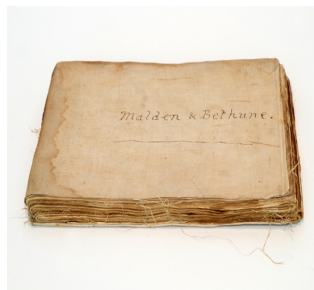 Malden & Bethune.